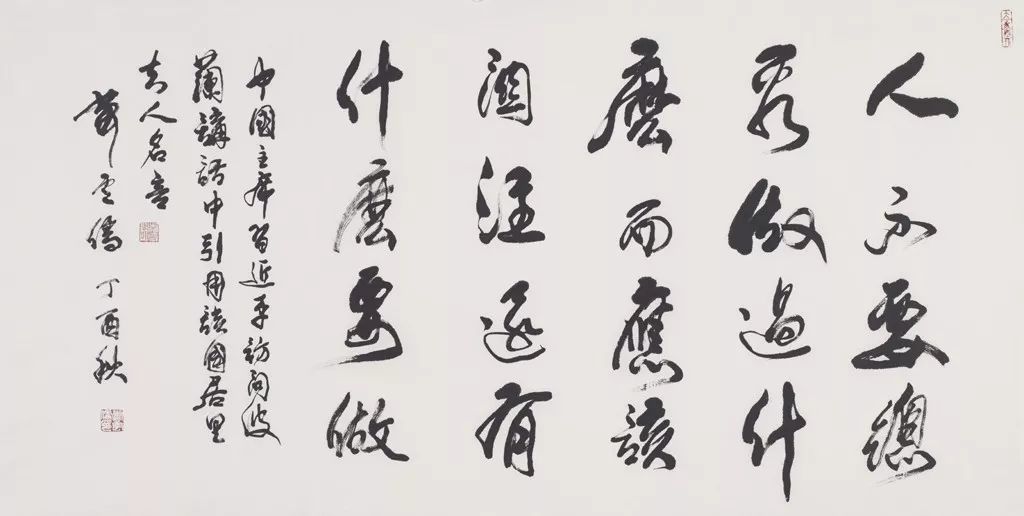 人不要總
看做過什
麼而應該
關注還有
什麼要做
中國主席習近平訪問波
蘭講話中引用該國居里
夫人名言
丁酉秋